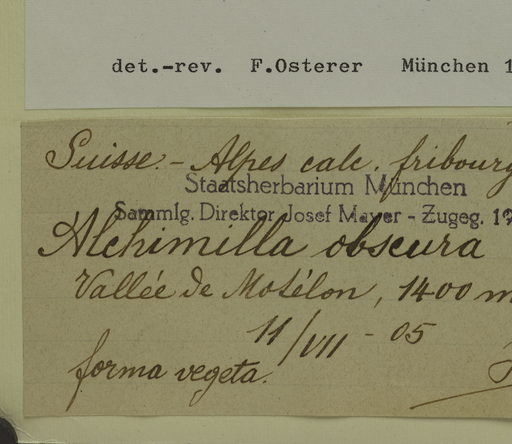 det.-rev. F.Osterer München 1
Suisse.- Alpes calc. fribourg
Staatsherbarium München
Sammlg. Direktor Josef Mayer - Zugeg. 19
Alchimilla obscura
Vallée de Motélon, 1400 m
11/VII - 05
forma vegeta.